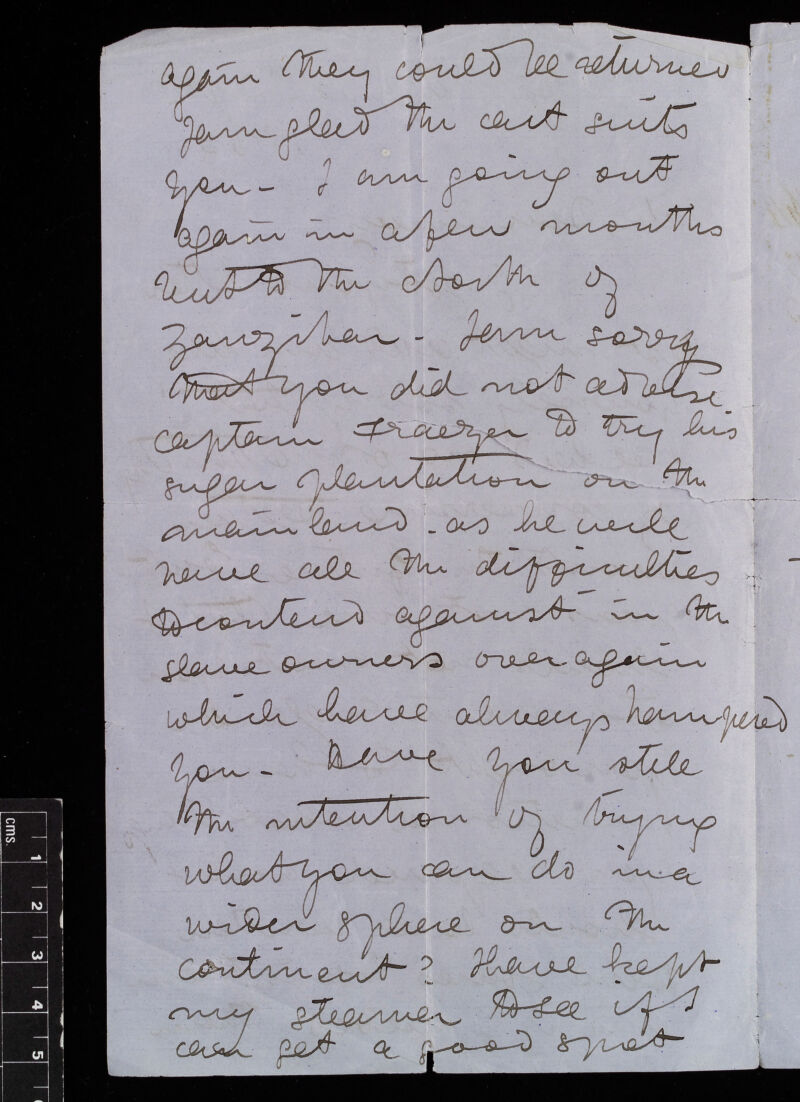 again they could be returned
I am glad the cart suits
you - I am going out
again in a few months
but to the North of
Zanzibar - I am sorry
that you did not advise
captain Fraezer to try his
sugar plantation on the
mainland - as he will
have all the difficulties
to contend against in the
slave owners over again
which have always hampered
you - Have you still
the intention of trying
what you can do in a
wider sphere on the
continent? I have kept
my steamer to see if I
can get a good spot
cms
1
2
3
4
5